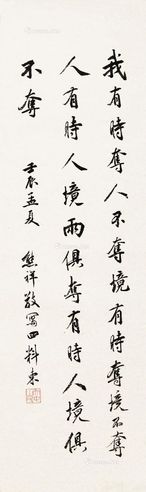 我有時奪人不奪境有時奪境不奪
人有時人境兩俱奪有時人境俱
不奪
壬辰孟夏 熊祥敬寫四料柬